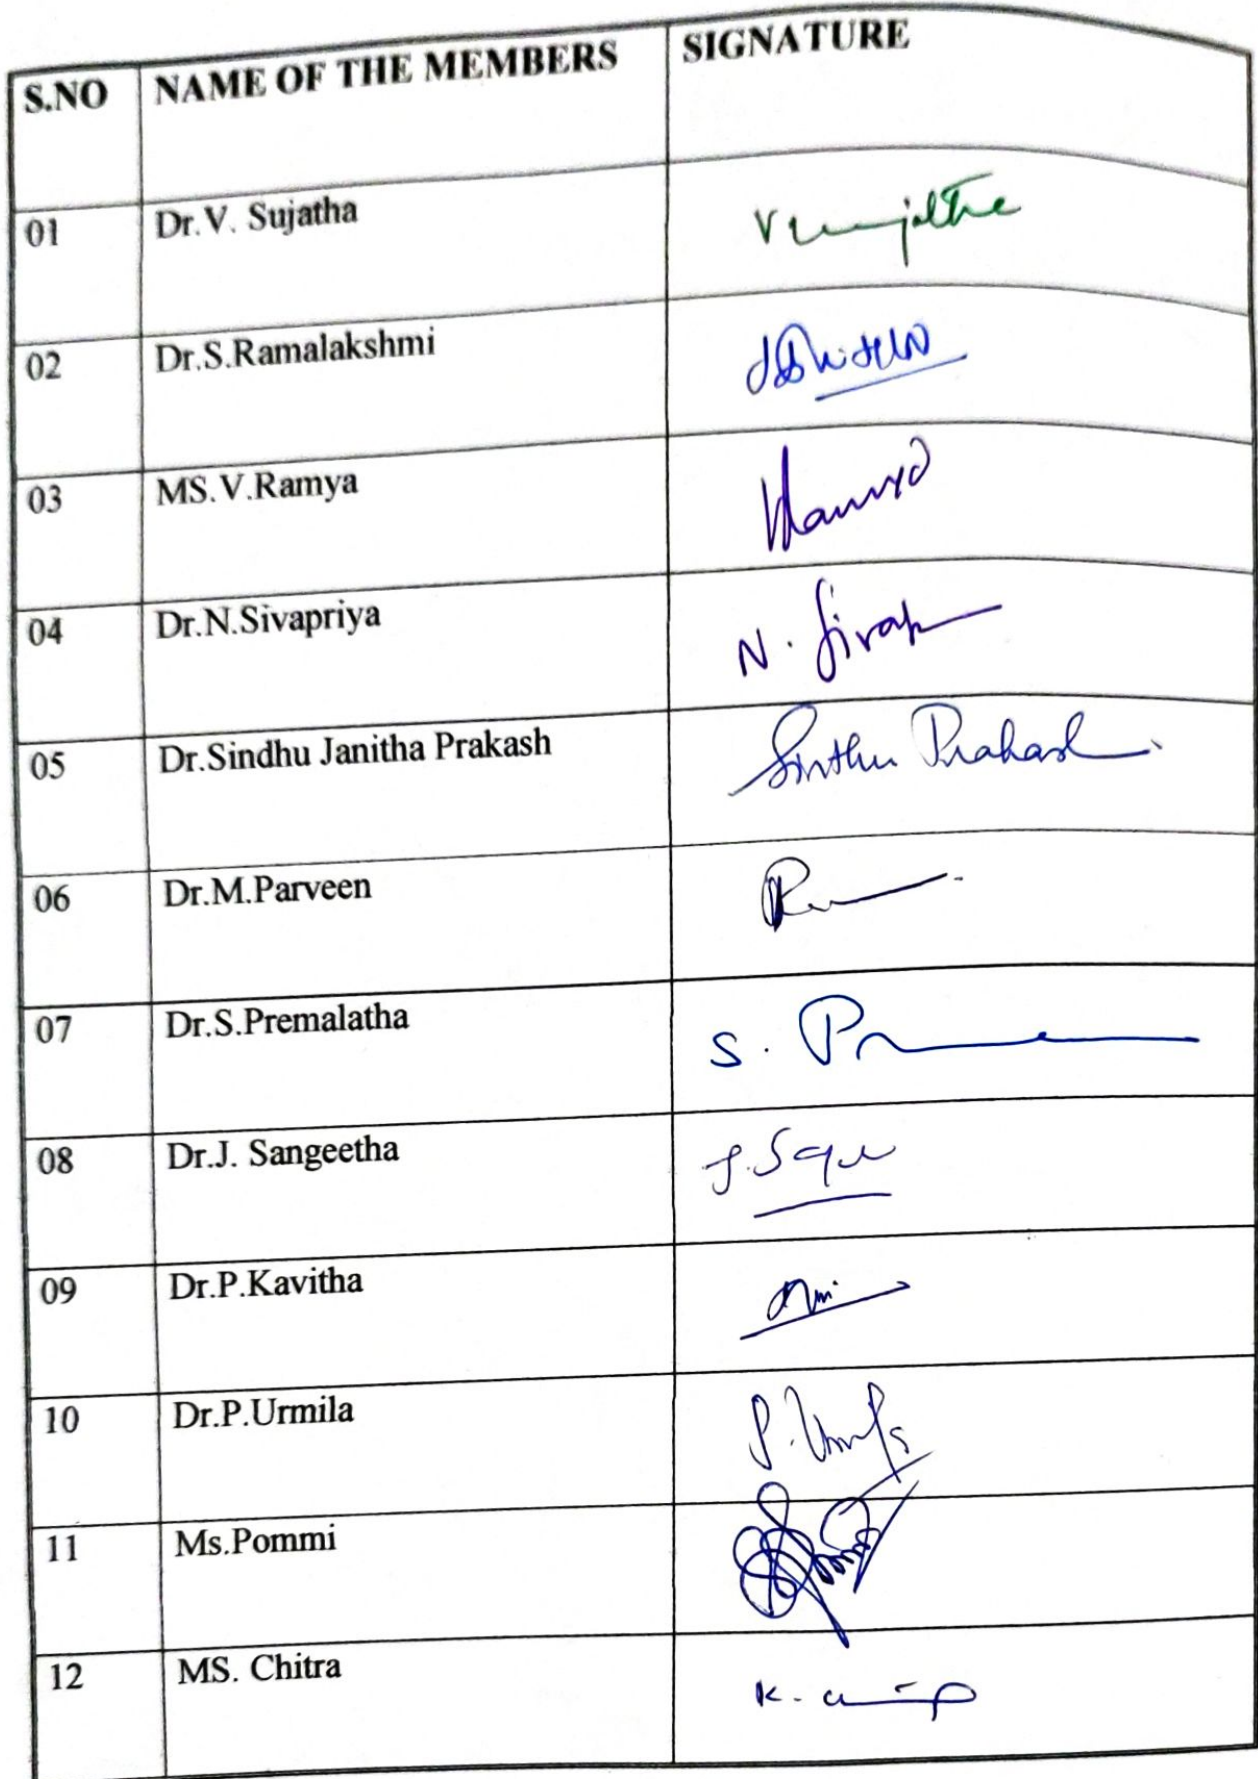 S.NO NAME OF THE MEMBERS SIGNATURE
01 Dr.V. Sujatha
02 Dr.S.Ramalakshmi
03 MS.V.Ramya
04 Dr.N.Sivapriya
05 Dr.Sindhu Janitha Prakash Sinthu Prakash
06 Dr.M.Parveen
07 Dr.S.Premalatha
08 Dr.J. Sangeetha
09 Dr.P.Kavitha
10 Dr.P.Urmila
11 Ms.Pommi
12 MS. Chitra